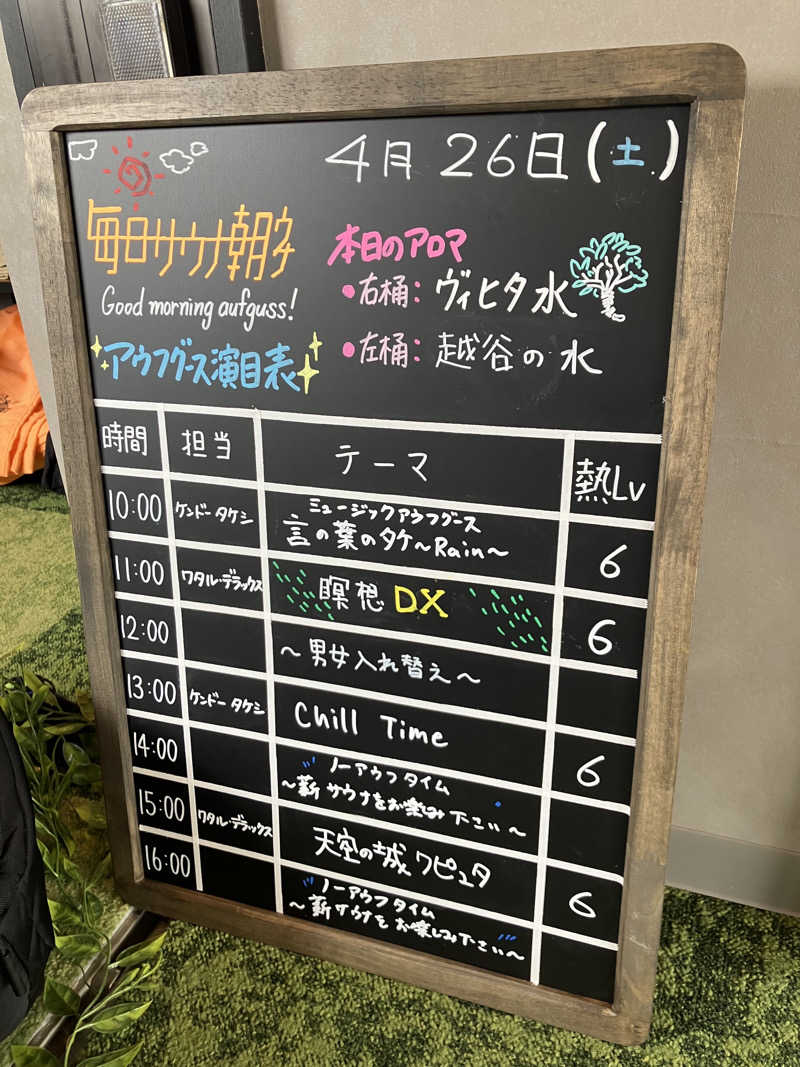 4月 26日(土)
毎日サウナ朝子
Good morning aufguss!
アウフグース演目表
本日のアロマ
•右桶: ヴィヒタ水
•左桶: 越谷の水
時間 担当 テーマ 熱Lv
10:00 ケンドータケシ ミュージックアウフグース
言の葉のタケ~Rain~ 6
11:00 ワタル・デラックス 瞑想DX 6
12:00 ~男女入れ替え~
13:00 ケンドータケシ Chill Time 6
14:00 ノーアウフタイム
~薪サウナをお楽しみ下こい~
15:00 ワタル・デラックス 天空の城ワピュタ 6
16:00 ノーアウフタイム
~薪サウナをお楽しみ下こい~